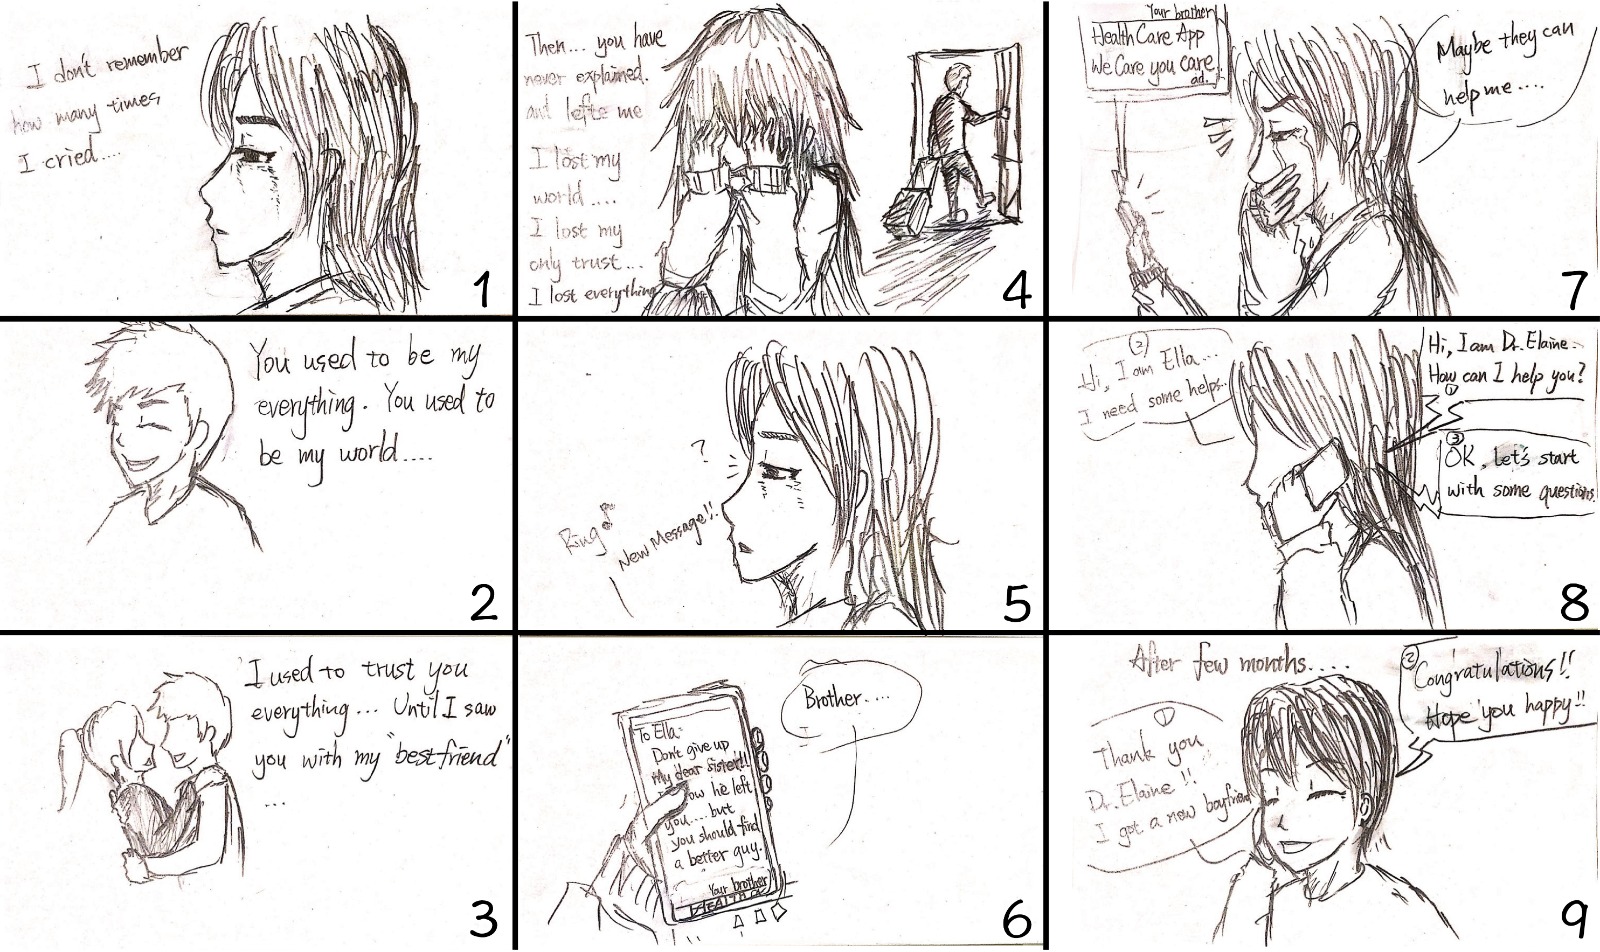 I don't remember
how many times
I cried....
1
You used to be my
everything. You used to
be my world....
2
I used to trust you
everything... Until I saw
you with my "bestfriend"
...
3
Then... you have
never explained.
and lefte me
I lost my
world ....
I lost my
only trust...
I lost everything
4
?
Ring
New Message!!
5
To Ella:
Don't give up
my dear sister!!
I know he left
you.... but
you should find
a better guy.
Your brother
HEALTHCA
Brother....
6
Your brother
Health Care App
We Care you care.
ad.
Maybe they can
help me....
7
②
Hi, I am Ella...
I need some helps..
Hi, I am Dr. Elaine.
How can I help you?
①
③
OK, let's start
with some questions
8
After few months.....
①
Thank you
Dr. Elaine !!
I got a new boyfriend
②
Congratulations!!
Hope you happy!!
9